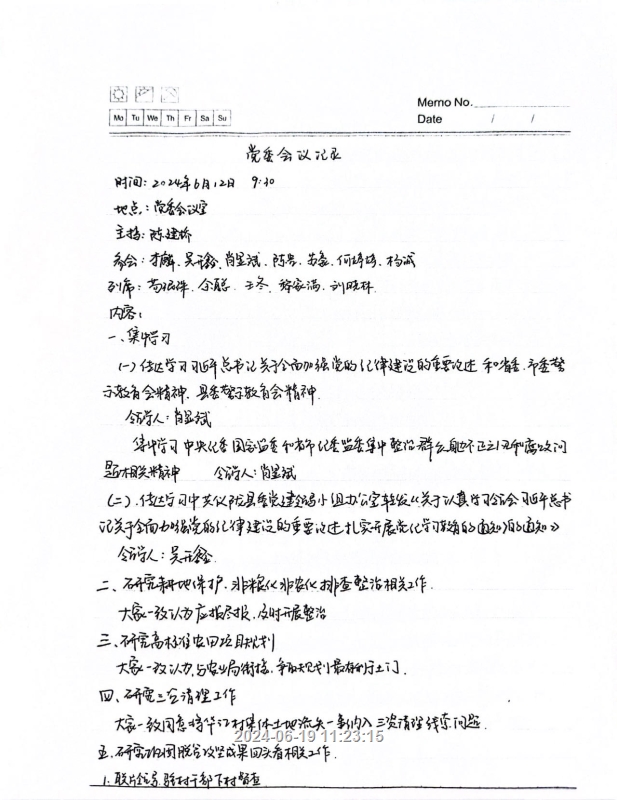 Memo No.
Mo Tu We Th Fr Sa Su
Date / /
党委会议记录
时间：2024年6月12日 9:30
地点：党委会议室
主持：陈建桥
参会：李麟、吴开鑫、肖显斌、陈 苏 何 杨诚
列席：余聪、王冬、 刘晓林
内容：
一、集中学习
(一) 传达学习习近平总书记关于全面加强党的纪律建设的重要论述和省委、市委警
示教育会精神、县委警示教育会精神.
领学人：肖显斌
集中学习中央纪委国家监委和省市纪委监委集中整治群众身边不正之风和腐败问
题相关精神 领学人：肖显斌
(二)、传达学习中共仪陇县委党建领导小组办公室转发《关于认真学习领会习近平总书
记关于全面加强党的纪律建设的重要论述扎实开展党纪学习教育的通知》的通知》
领学人：吴开鑫
二、研究耕地保护、非粮化非农化排查整治相关工作.
大家一致认为应报尽报，及时开展整治
三、研究高标准农田项目规划
大家一致认为，与农业局衔接，争取规划最有利于土门.
四、研究三资清理工作
大家一致同意将华江村集体土地流失一事纳入三资清理线索问题.
五、研究巩固脱贫攻坚成果回头看相关工作.
1、联片领导、驻村干部下村督查
2024-06-19 11:23:15